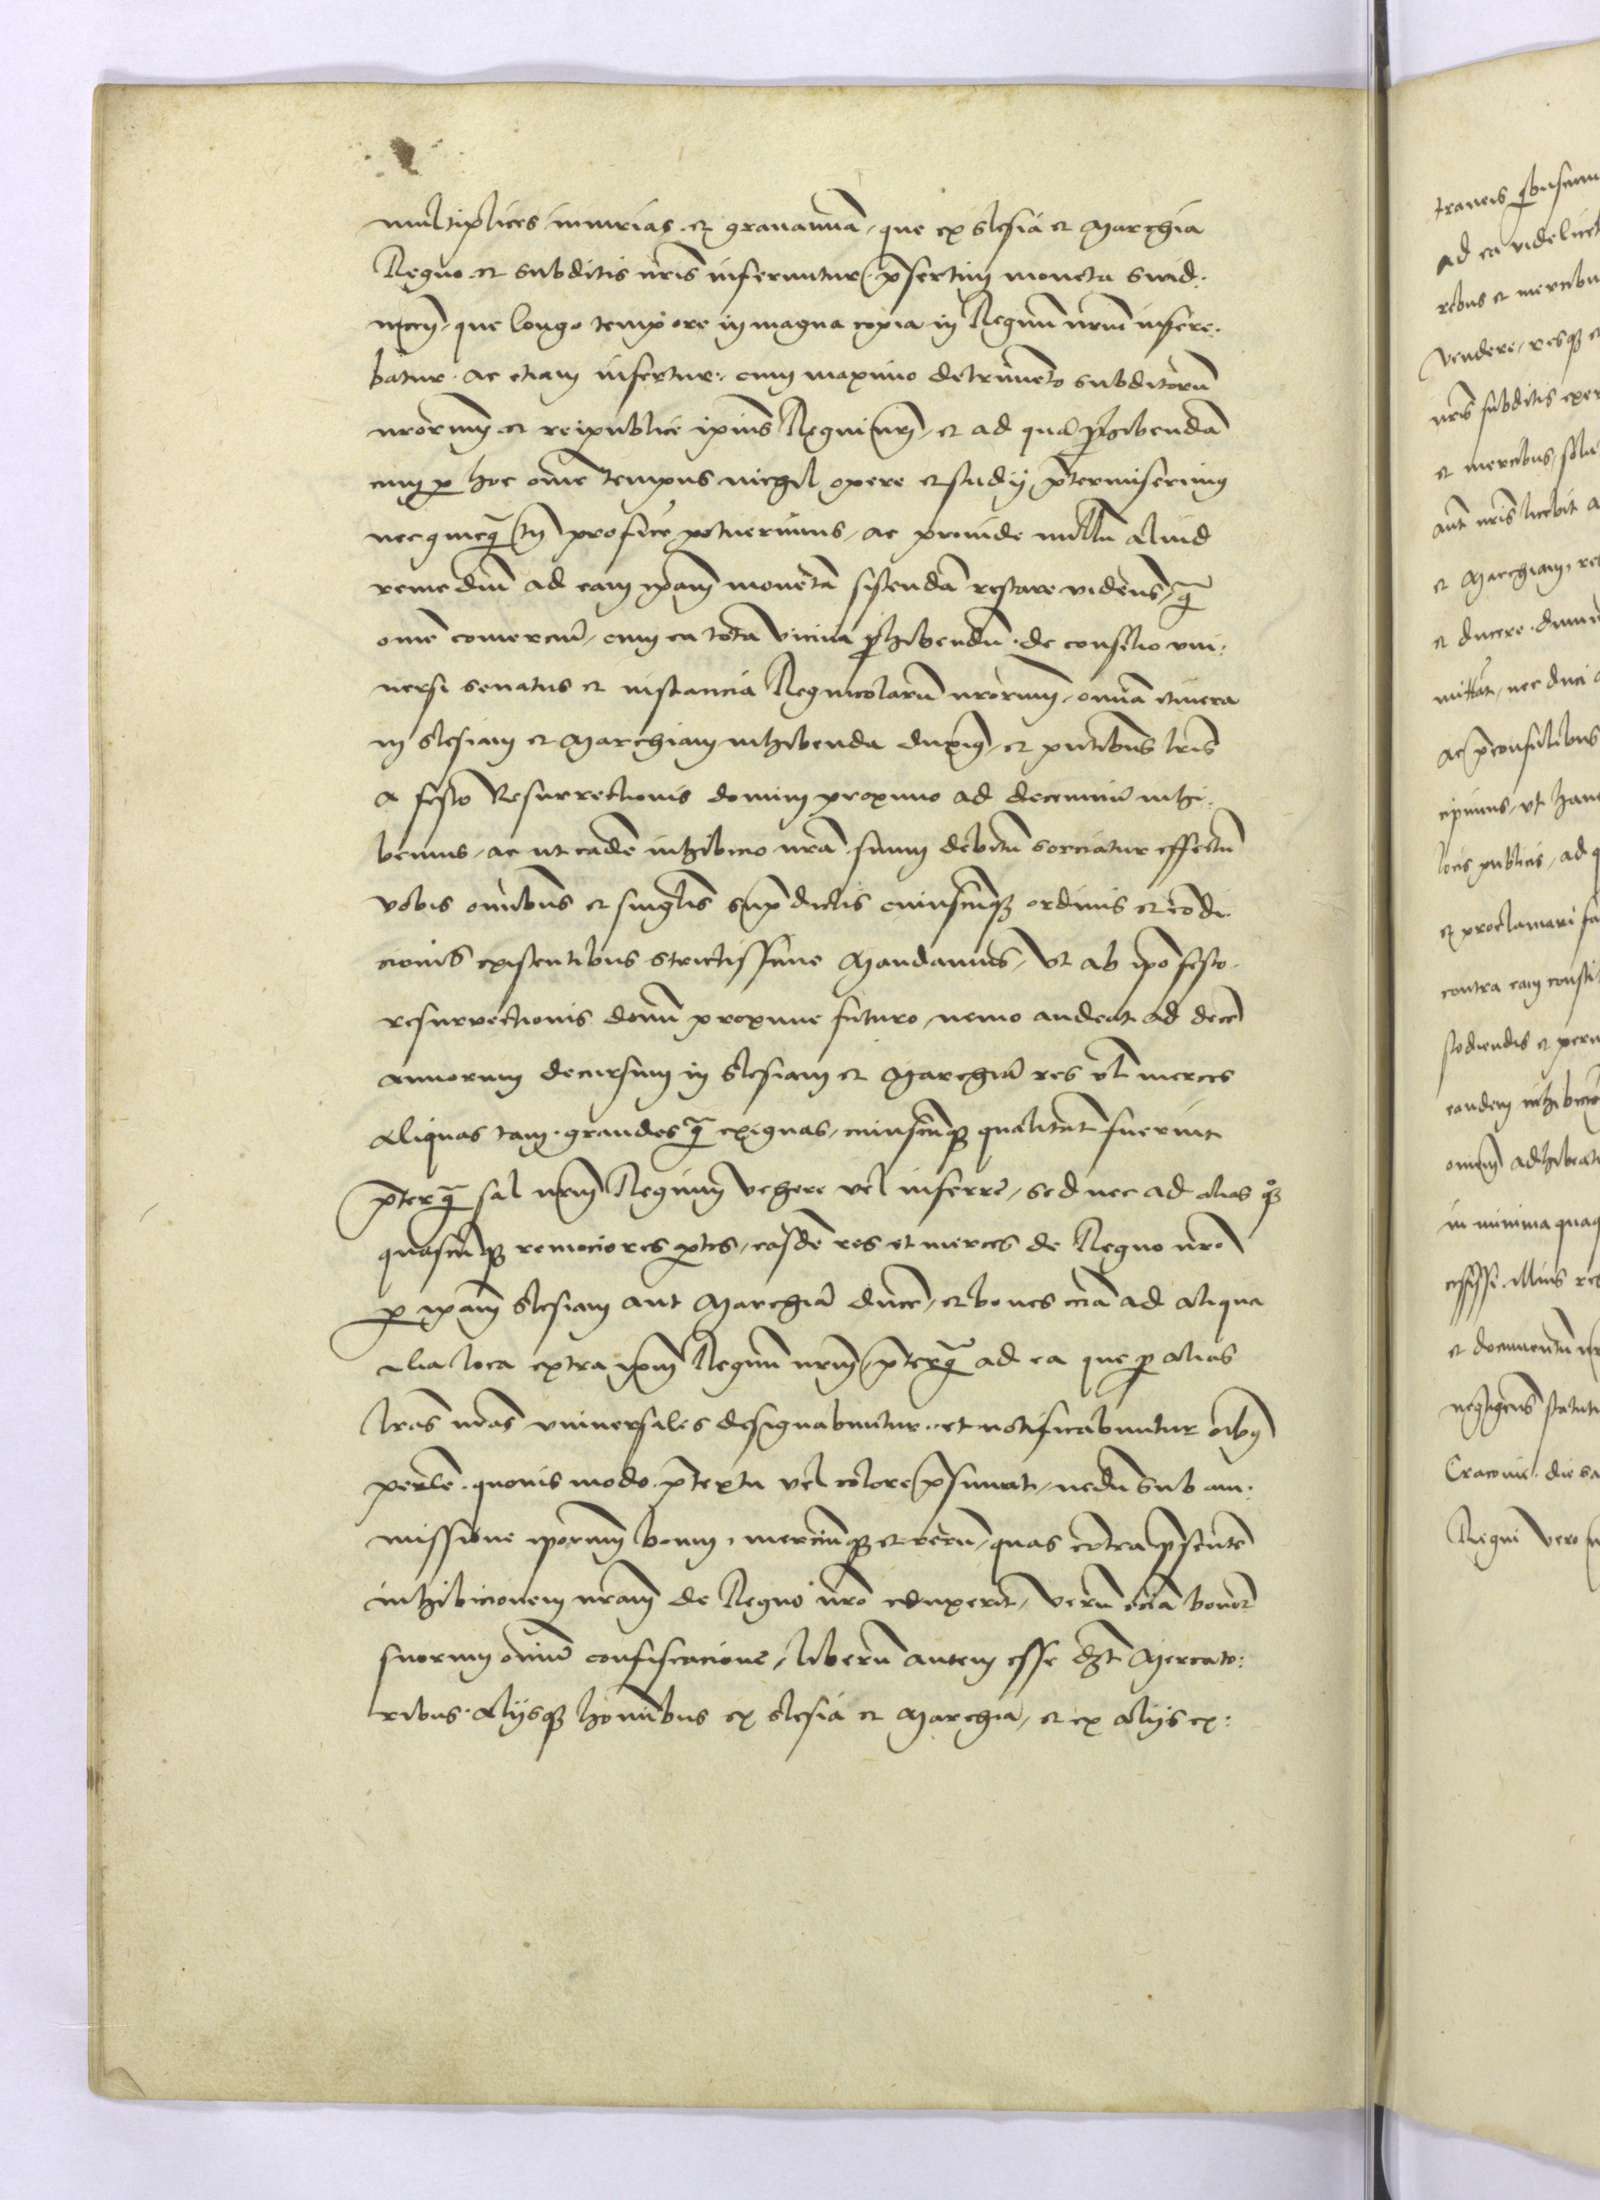 multiplices iniurias et grauamina, que ex Slesia et Marchia
Regno et subditis nris inferuntur, psertim moneta Suid:
nicen. que longo tempore in magna copia in Regnum nrum infere:
batur. ac etiam infertur: cum maximo detrimento subditorum
nrorum et reipublice ipius Regni nri, et ad quam phibendam
cum p hoc omne tempus nichil opere et studij ptermiserimus
nec quicq tn proficere potuerimus, ac proinde nullum aliud
remedium ad eam ipam monetam sistendam restare videns, q
omne comercium, cum ea tota vicinia phibendum. de consilio vni:
uersi senatus et instancia Regnicolarum nrorum, omnia itinera
in Slesiam et Marchiam inhibenda duximus, et pntibus lris
a festo Resurrectionis domini proximo ad decennium inhi:
bemus, ac ut eadem inhibicio nra suum debitum sorciatur effectum
vobis omnibus et singulis supradictis cuiuscunq ordinis et condi:
cionis existentibus strictissime Mandamus, Vt ab ipo festo
resurrectionis domini proxime futuro, nemo audeat ad decem
annorum decursum in Slesiam et Marchiam res vel merces
aliquas tam grandes q exiguas, cuiuscunq qualitatis fuerint
pterq sal nrum Regnum vehere vel inferre, sed nec ad alias
quascunq remociores ptes, easdem res et merces de Regno nro
p ipam Slesiam aut Marchiam ducere, et boues eciam ad aliqua
alia loca extra ipm Regnum nrum, pterq ad ea que p alias
lras nras vniuersales designabuntur et notificabuntur oibus
pellere. quouis modo ptextu vel colore psumat, nedum sub am:
missione iporum boum, merciumq et rerum, quas contra psentem
inhibicionem nram de Regno nro eduxerit, Verum eciam bonorum
suorum omnium confiscacione, liberum autem esse Mercato:
ribus. Alijsq hominibus ex Slesia et Marchia, et ex alijs ex:
ad ea videlicet
rebus et mercibus
Vendere, resq et
nris subditis
et mercibus,
aut nris licebit
et Marchiam,
et ducere.
mittat, nec duci
ac pconsulibus
cipimus, vt hanc
locis publicis, ad
et proclamari
contra eam
stodiendis et
eandem
omnem adhibeatis
in minima
illius
et documentum
negligens
Cracouie. die
Regni vero